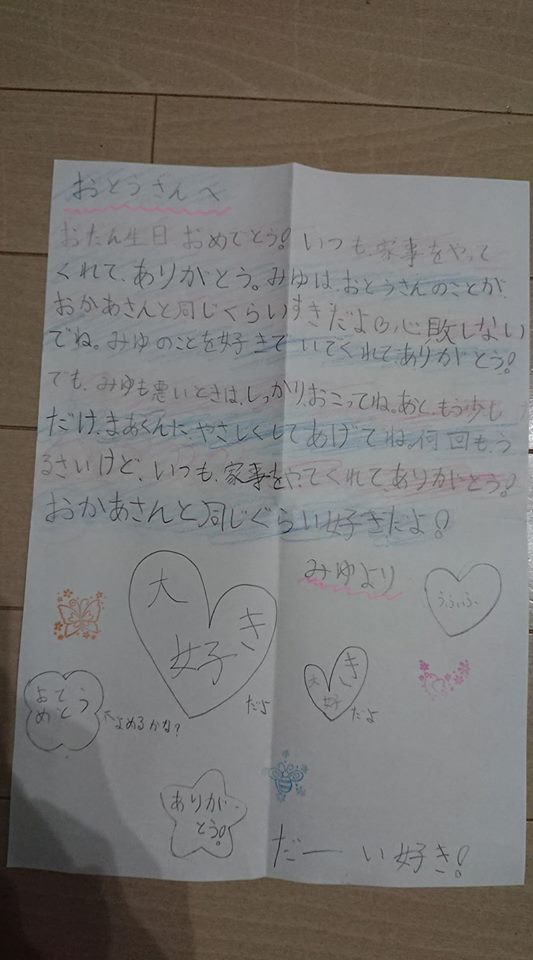 おとうさんへ
おたん生日おめでとう!いつも、家事をやって
くれて、ありがとう。みゆは、おとうさんのことが、
おかあさんと同じくらいすきだよ心敗しない
でね。みゆのことを好きでいてくれてありがとう!
でも、みゆも悪いときは、しっかり、おこってね。あと、もう少し
だけ、まあくんに、やさしくしてあげてね。何回も、う
るさいけど、いつも、家事をやってくれて、ありがとう!
おかあさんと同じぐらい好きだよ!
みゆより
大
好き
だよ
うふふ
大
好き
だよ
おて
めとう
よめるかな?
ありが
とう!
だーい好き!